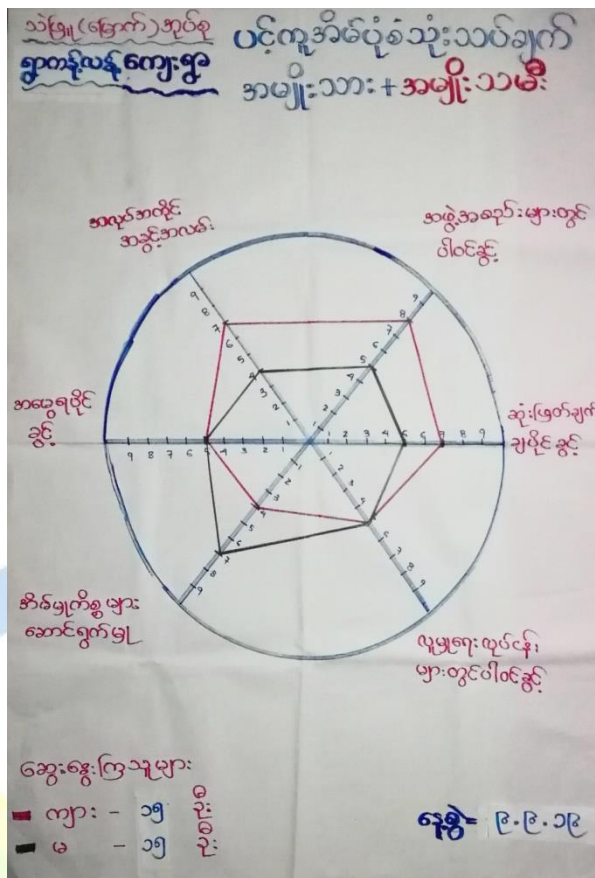 သဲဖြူ(မြောက်)အုပ်စု
ရွာကန့်လန့်ကျေးရွာ
ပင့်ကူအိမ်ပုံစံသုံးသပ်ချက်
အမျိုးသား+အမျိုးသမီး
အလုပ်အကိုင်
အခွင့်အလမ်း
အဖွဲ့အစည်းများတွင်
ပါဝင်ခွင့်
အမွေရပိုင်
ခွင့်
ဆုံးဖြတ်ချက်
ချပိုင်ခွင့်
အိမ်မှုကိစ္စများ
ဆောင်ရွက်မှု
လူမှုရေးလုပ်ငန်း
များတွင်ပါဝင်ခွင့်
ဆွေးနွေးကြသူများ
ကျား - ၁၅ ဦး
မ - ၁၅ ဦး
နေ့စွဲ= ၉.၉.၁၉